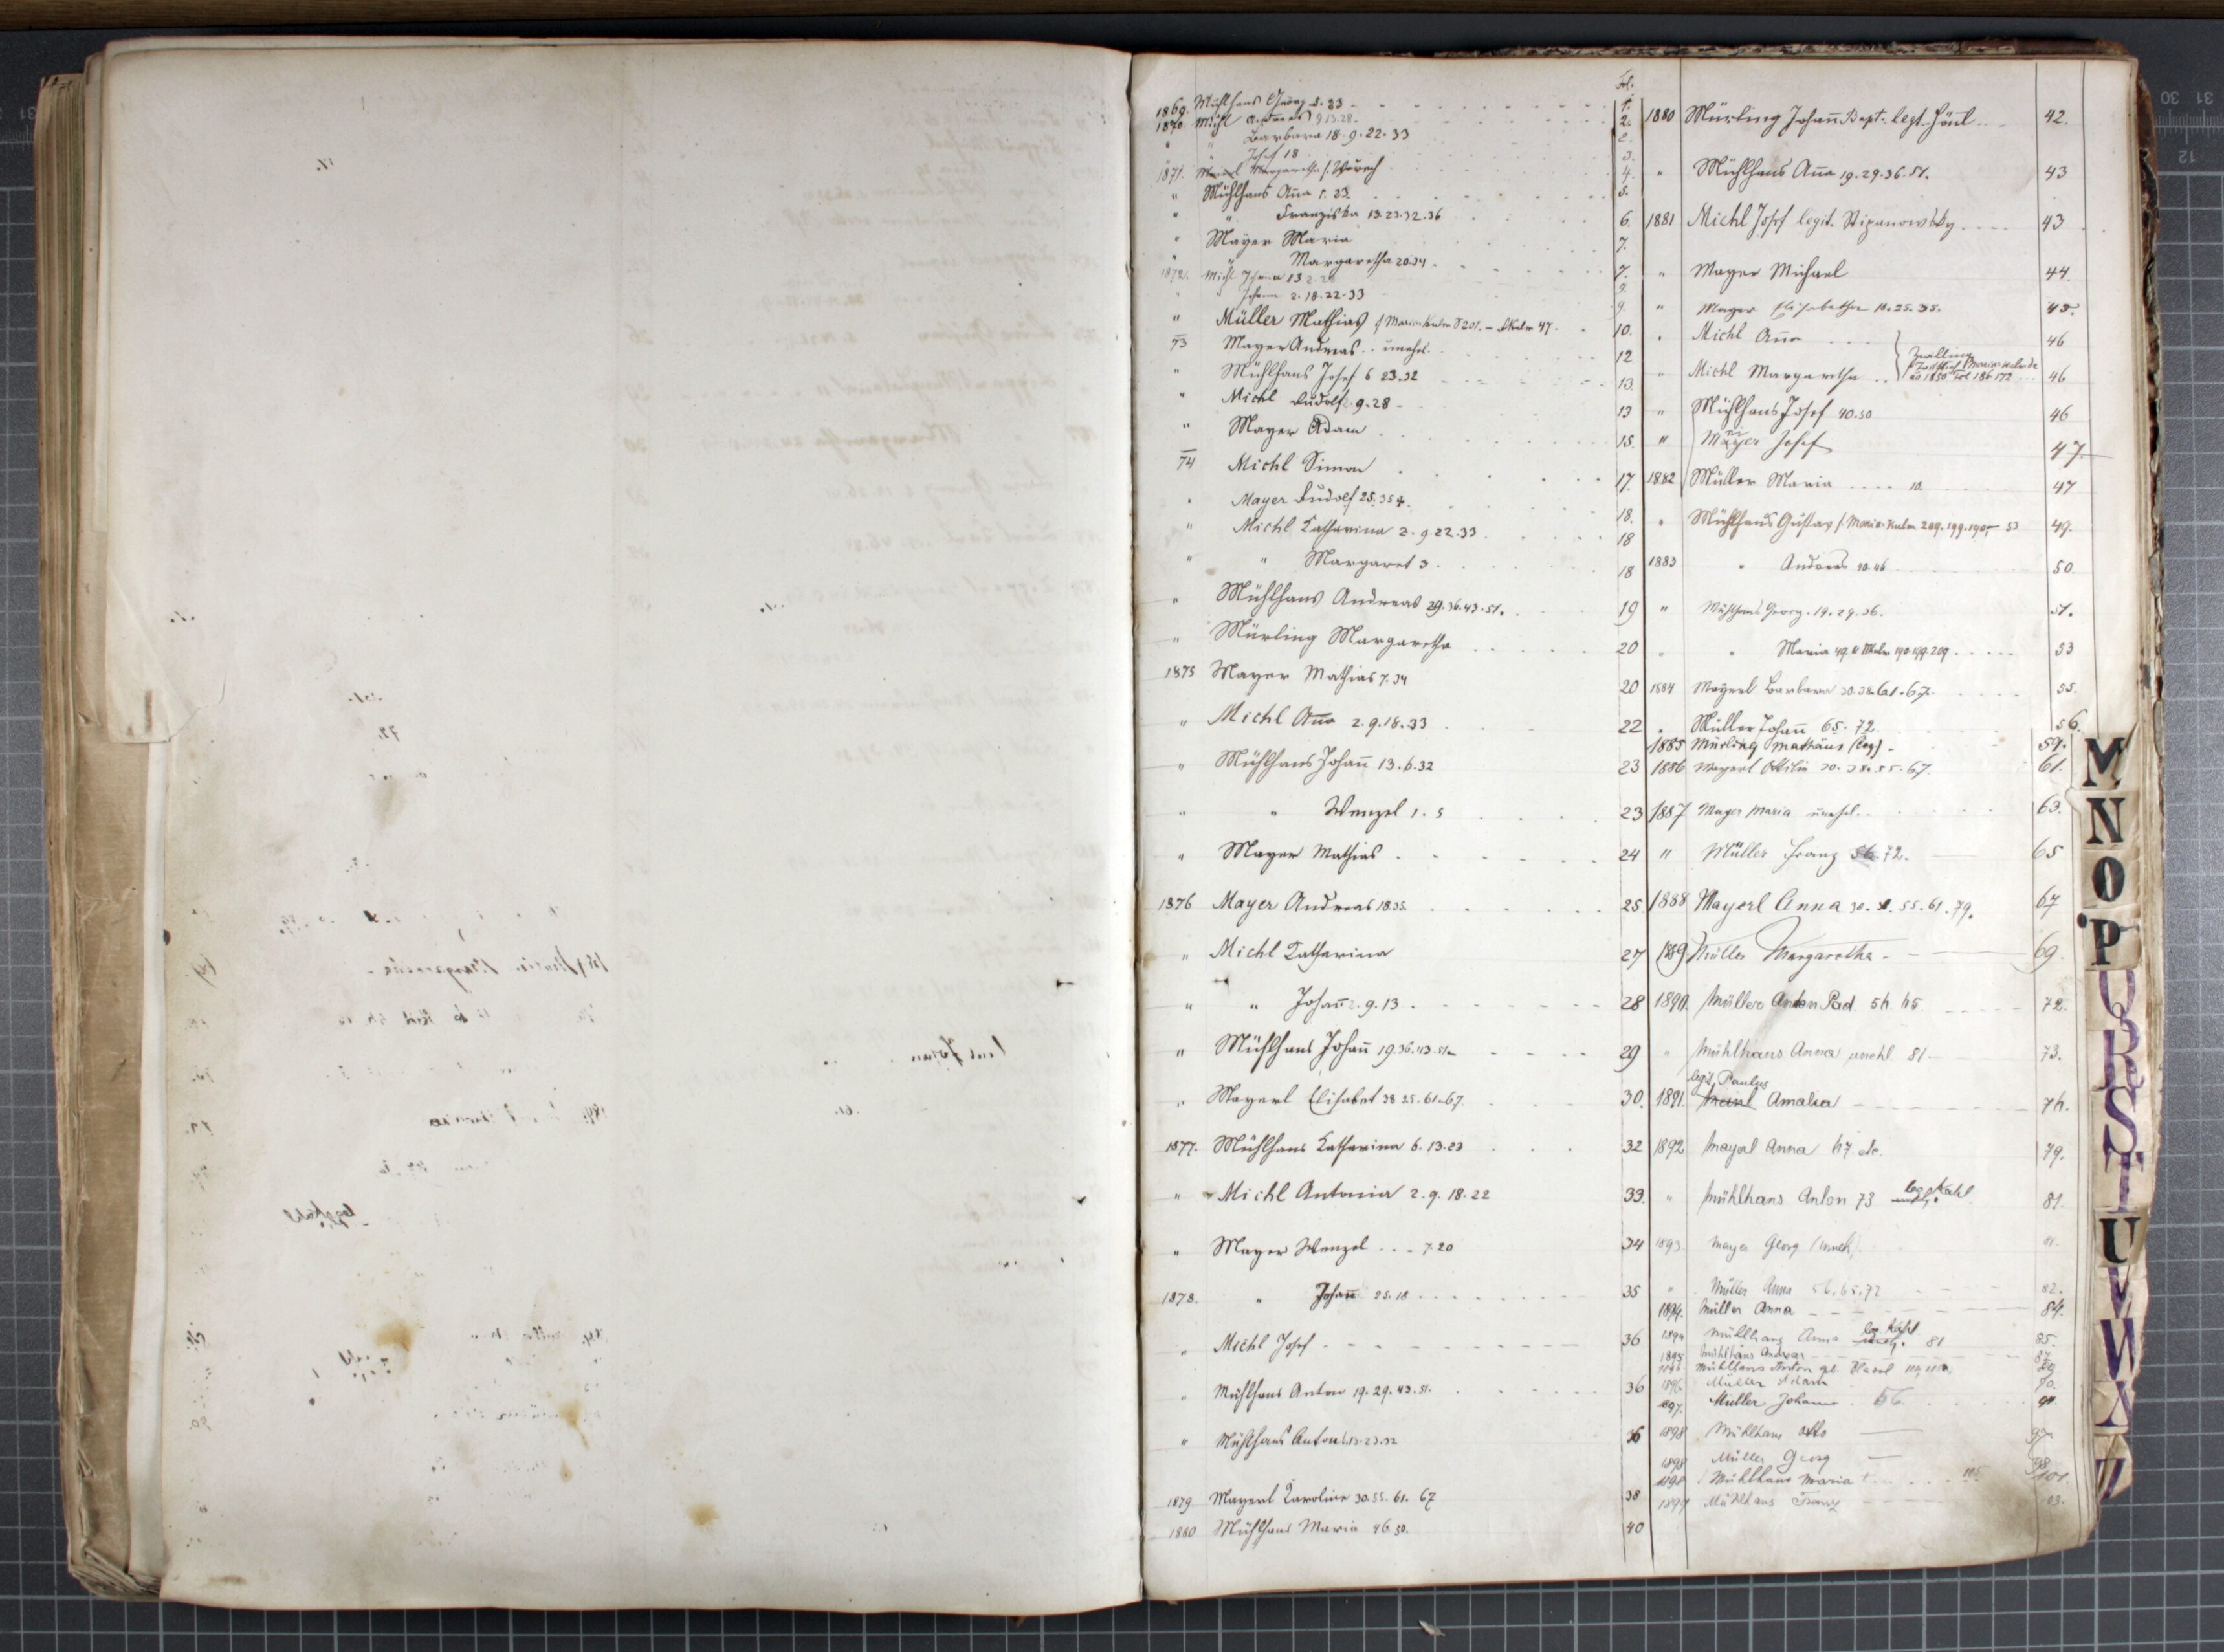 Fol.
1869. Mühlhans Georg 5. 23 1.
1870. Michl 9.13.28. 2.
" " Barbara 18. 9. 22. 33 2.
" Josef 18 3.
1871. Margaretha 4.
" Mühlhans Anna 1. 23. 5.
" " Franziska 13. 23. 32. 36 6.
" Mayer Maria 7.
" " Margaretha 20. 34. 7.
1872. Michl 13 9.
" " Johann 2. 18. 22. 33 9.
" Müller Mathias 10.
73 Mayer Andreas . . unehel. 12
" Mühlhans Josef 6 23. 32 13.
" Michl Rudolf 9. 28 13
" Mayer Adam 15.
74 Michl Simon 17.
" Mayer Rudolf 25. 35 18.
" Michl Katharina 2. 9. 22. 33 18
" " Margaret 3. 18
" Mühlhans Andreas 29. 36. 43. 51. 19
" Mürling Margaretha 20
1875 Mayer Mathias 7. 34 20
" Michl Anna 2. 9. 18. 33 22
" Mühlhans Johann 13. 6. 32 23
" " Wenzel 1. 5 23
" Mayer Mathias 24
1876 Mayer Andreas 18. 35. 25.
" Michl Katharina 27
" " Johann 2. 9. 13. 28
" Mühlhans Johann 19. 36. 43. 51. 29
" Mayerl Elisabet 38 55. 61. 67. 30.
1877. Mühlhans Katharina 6. 13. 23 32
" Michl Antonia 2. 9. 18. 22 33.
" Mayer Wenzel . . . 7. 20 34
1878. " Johann 25. 18 35
" Michl Josef 36
" Mühlhans Anton 19. 29. 43. 51. 36
" Mühlhans Anton 13. 23. 32 36
1879. Mayerl Karoline 30. 55. 61. 67 38
1880 Mühlhans Maria 46. 50. 40
1880 Mürling Johann Bapt. legt. 42.
" Mühlhans Anna 19. 29. 36. 51. 43
1881 Michl Josef legit. Stipanowsky 43
" Mayer Michael 44.
" Mayer Elisabetha 18. 25. 35. 45.
" Michl Anna 46
Zwilling
" Michl Margaretha 46
" Mühlhans Josef 40. 50 46
" Mayer Josef 47
1882 Müller Maria 10. 47
" Mühlhans Gustav f. Maria Kulm 209. 199. 190 53 49.
1883 " Andreas 40. 46 50.
" Mühlhans Georg. 19. 29. 36. 51.
" " Maria 49. 190. 199. 209 53
1884 Mayerl Barbara 30. 38. 61. 67. 55.
" Müller Johann 65. 72. 56.
1885 Mürling Mathäus (leg) 59.
1886 Mayerl Ottilie 30. 38. 55. 67. 61.
1887 Mayer Maria unehel. 63.
" Müller Franz 56 72. 65
1888 Mayerl Anna 30. 38. 55. 61. 79. 67
1889 Müller Margaretha 69.
1890. Müller Anton Pad. 56. 65 72.
" Mühlhans Anna unehl 81 73.
legt. Paulus
1891 Amalia 76.
1892 Mayerl Anna 67 etc. 79.
" Mühlhans Anton 73 leg. Kahl 81.
1893 Mayer Georg (unehl)
" Müller Anna 56. 65. 72 82.
1894. Müller Anna 84.
1894 Mühlhans Anna leg. Kahl 81 85.
1895 Mühlhans Andreas 87
Mühlhans Anton
1896 Müller Adam 90.
1897. Müller Johann 56.
1898 Mühlhans Otto 97
1898 Müller Georg
1898 Mühlhans Maria 105 101.
1899 Mühlhans Franz 103.
M
N
O
P
Q
R
S
T
U
V
W
Z